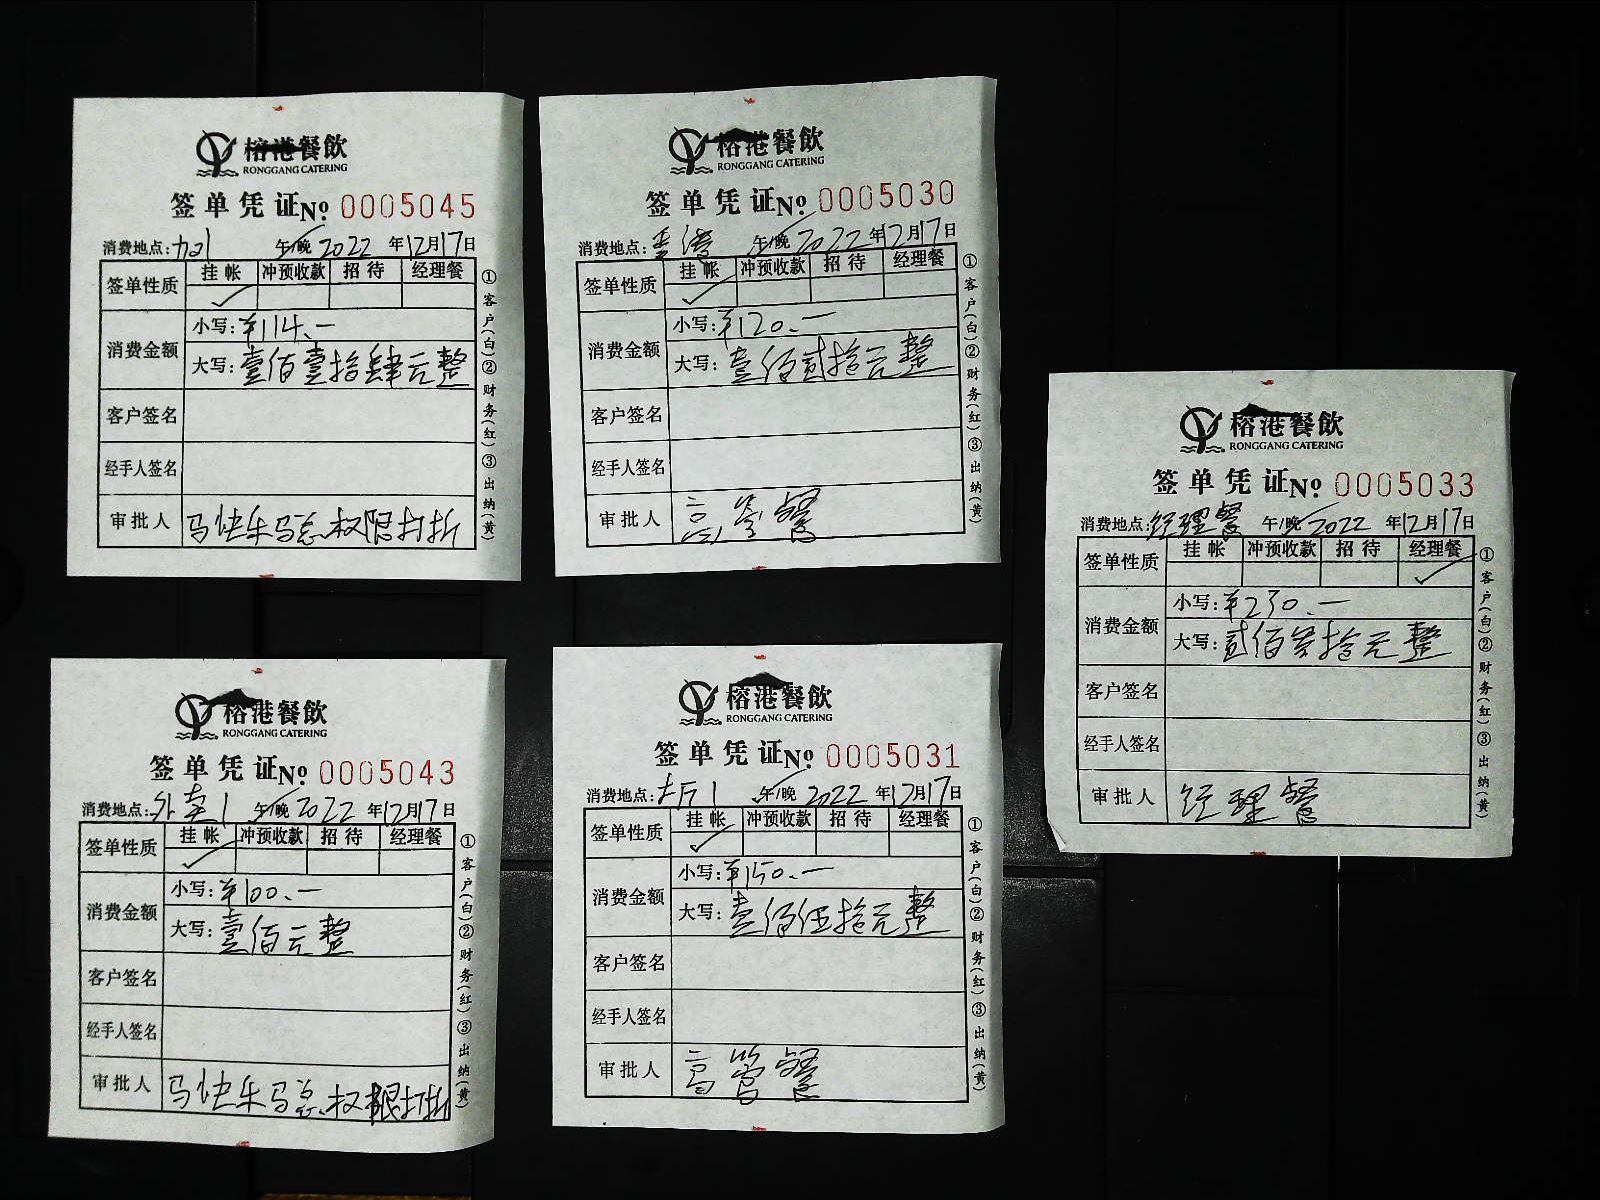 榕港餐飲
RONGGANG CATERING
签单凭证№ 0005045
消费地点：加1 午/晚 2022 年12月17日
签单性质 挂帐 冲预收款 招待 经理餐
✓
消费金额 小写：¥114.一
大写：壹佰壹拾肆元整
客户签名
经手人签名
审批人 马快乐马总权限打折
①客户(白)②财务(红)③出纳(黄)
榕港餐飲
RONGGANG CATERING
签单凭证№ 0005030
消费地点： 午/晚 2022 年12月17日
签单性质 挂帐 冲预收款 招待 经理餐
✓
消费金额 小写：¥120.一
大写：壹佰贰拾元整
客户签名
经手人签名
审批人 高管餐
①客户(白)②财务(红)③出纳(黄)
榕港餐飲
RONGGANG CATERING
签单凭证№ 0005033
消费地点：经理餐 午/晚 2022 年12月17日
签单性质 挂帐 冲预收款 招待 经理餐
✓
消费金额 小写：¥230.一
大写：贰佰叁拾元整
客户签名
经手人签名
审批人 经理餐
①客户(白)②财务(红)③出纳(黄)
榕港餐飲
RONGGANG CATERING
签单凭证№ 0005043
消费地点：外卖1 午/晚 2022 年12月17日
签单性质 挂帐 冲预收款 招待 经理餐
✓
消费金额 小写：¥100.一
大写：壹佰元整
客户签名
经手人签名
审批人 马快乐马总权限打折
①客户(白)②财务(红)③出纳(黄)
榕港餐飲
RONGGANG CATERING
签单凭证№ 0005031
消费地点： 午/晚 2022 年12月17日
签单性质 挂帐 冲预收款 招待 经理餐
✓
消费金额 小写：¥150.一
大写：壹佰伍拾元整
客户签名
经手人签名
审批人 高管餐
①客户(白)②财务(红)③出纳(黄)